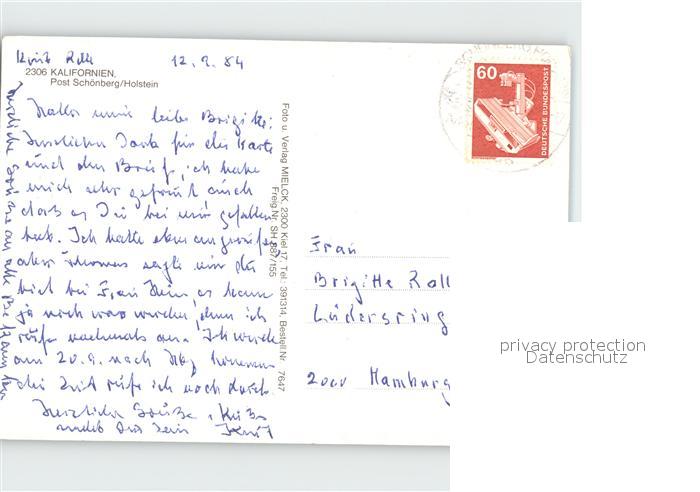 12.9.84
2306 KALIFORNIEN,
Post Schönberg/Holstein
Hallo meine liebe Brigitte,
herzlichen Dank für die Karte
und den Brief, ich habe
mich sehr gefreut auch
daß es Dir bei mir gefallen
hat. Ich hatte eben angerufen
aber Thomas sagte mir du
bist bei Frau
ja noch was werden, denn ich
rufe nochmals an. Ich werde
am 20.9. nach Hbg kommen
die Zeit rufe ich noch durch
Herzliche Grüße
Dein
Herzliche Grüße an alle Bekannten
Foto u. Verlag MIELCK, 2300 Kiel 17, Tel.: 391314, Bestell.Nr. 7647
Freig.Nr. SH 887/155
60
DEUTSCHE BUNDESPOST
Frau
Brigitte Roll
Lüdersring
2000 Hamburg
privacy protection
Datenschutz